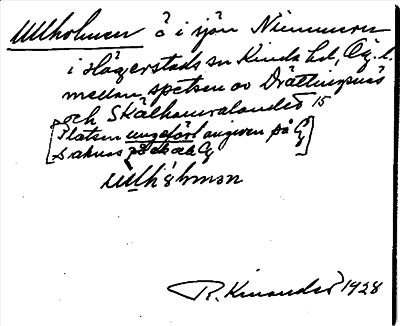 Ullholmen ö i sjön Nimmern
i Hägerstads sn Kinda hd, Ög. l.
mellan spetsen av Drättingsnäs
och Skälhamralandet 15
[Platsen ungefärl angiven på G
Saknas på ek och G]
R. Kinander 1928